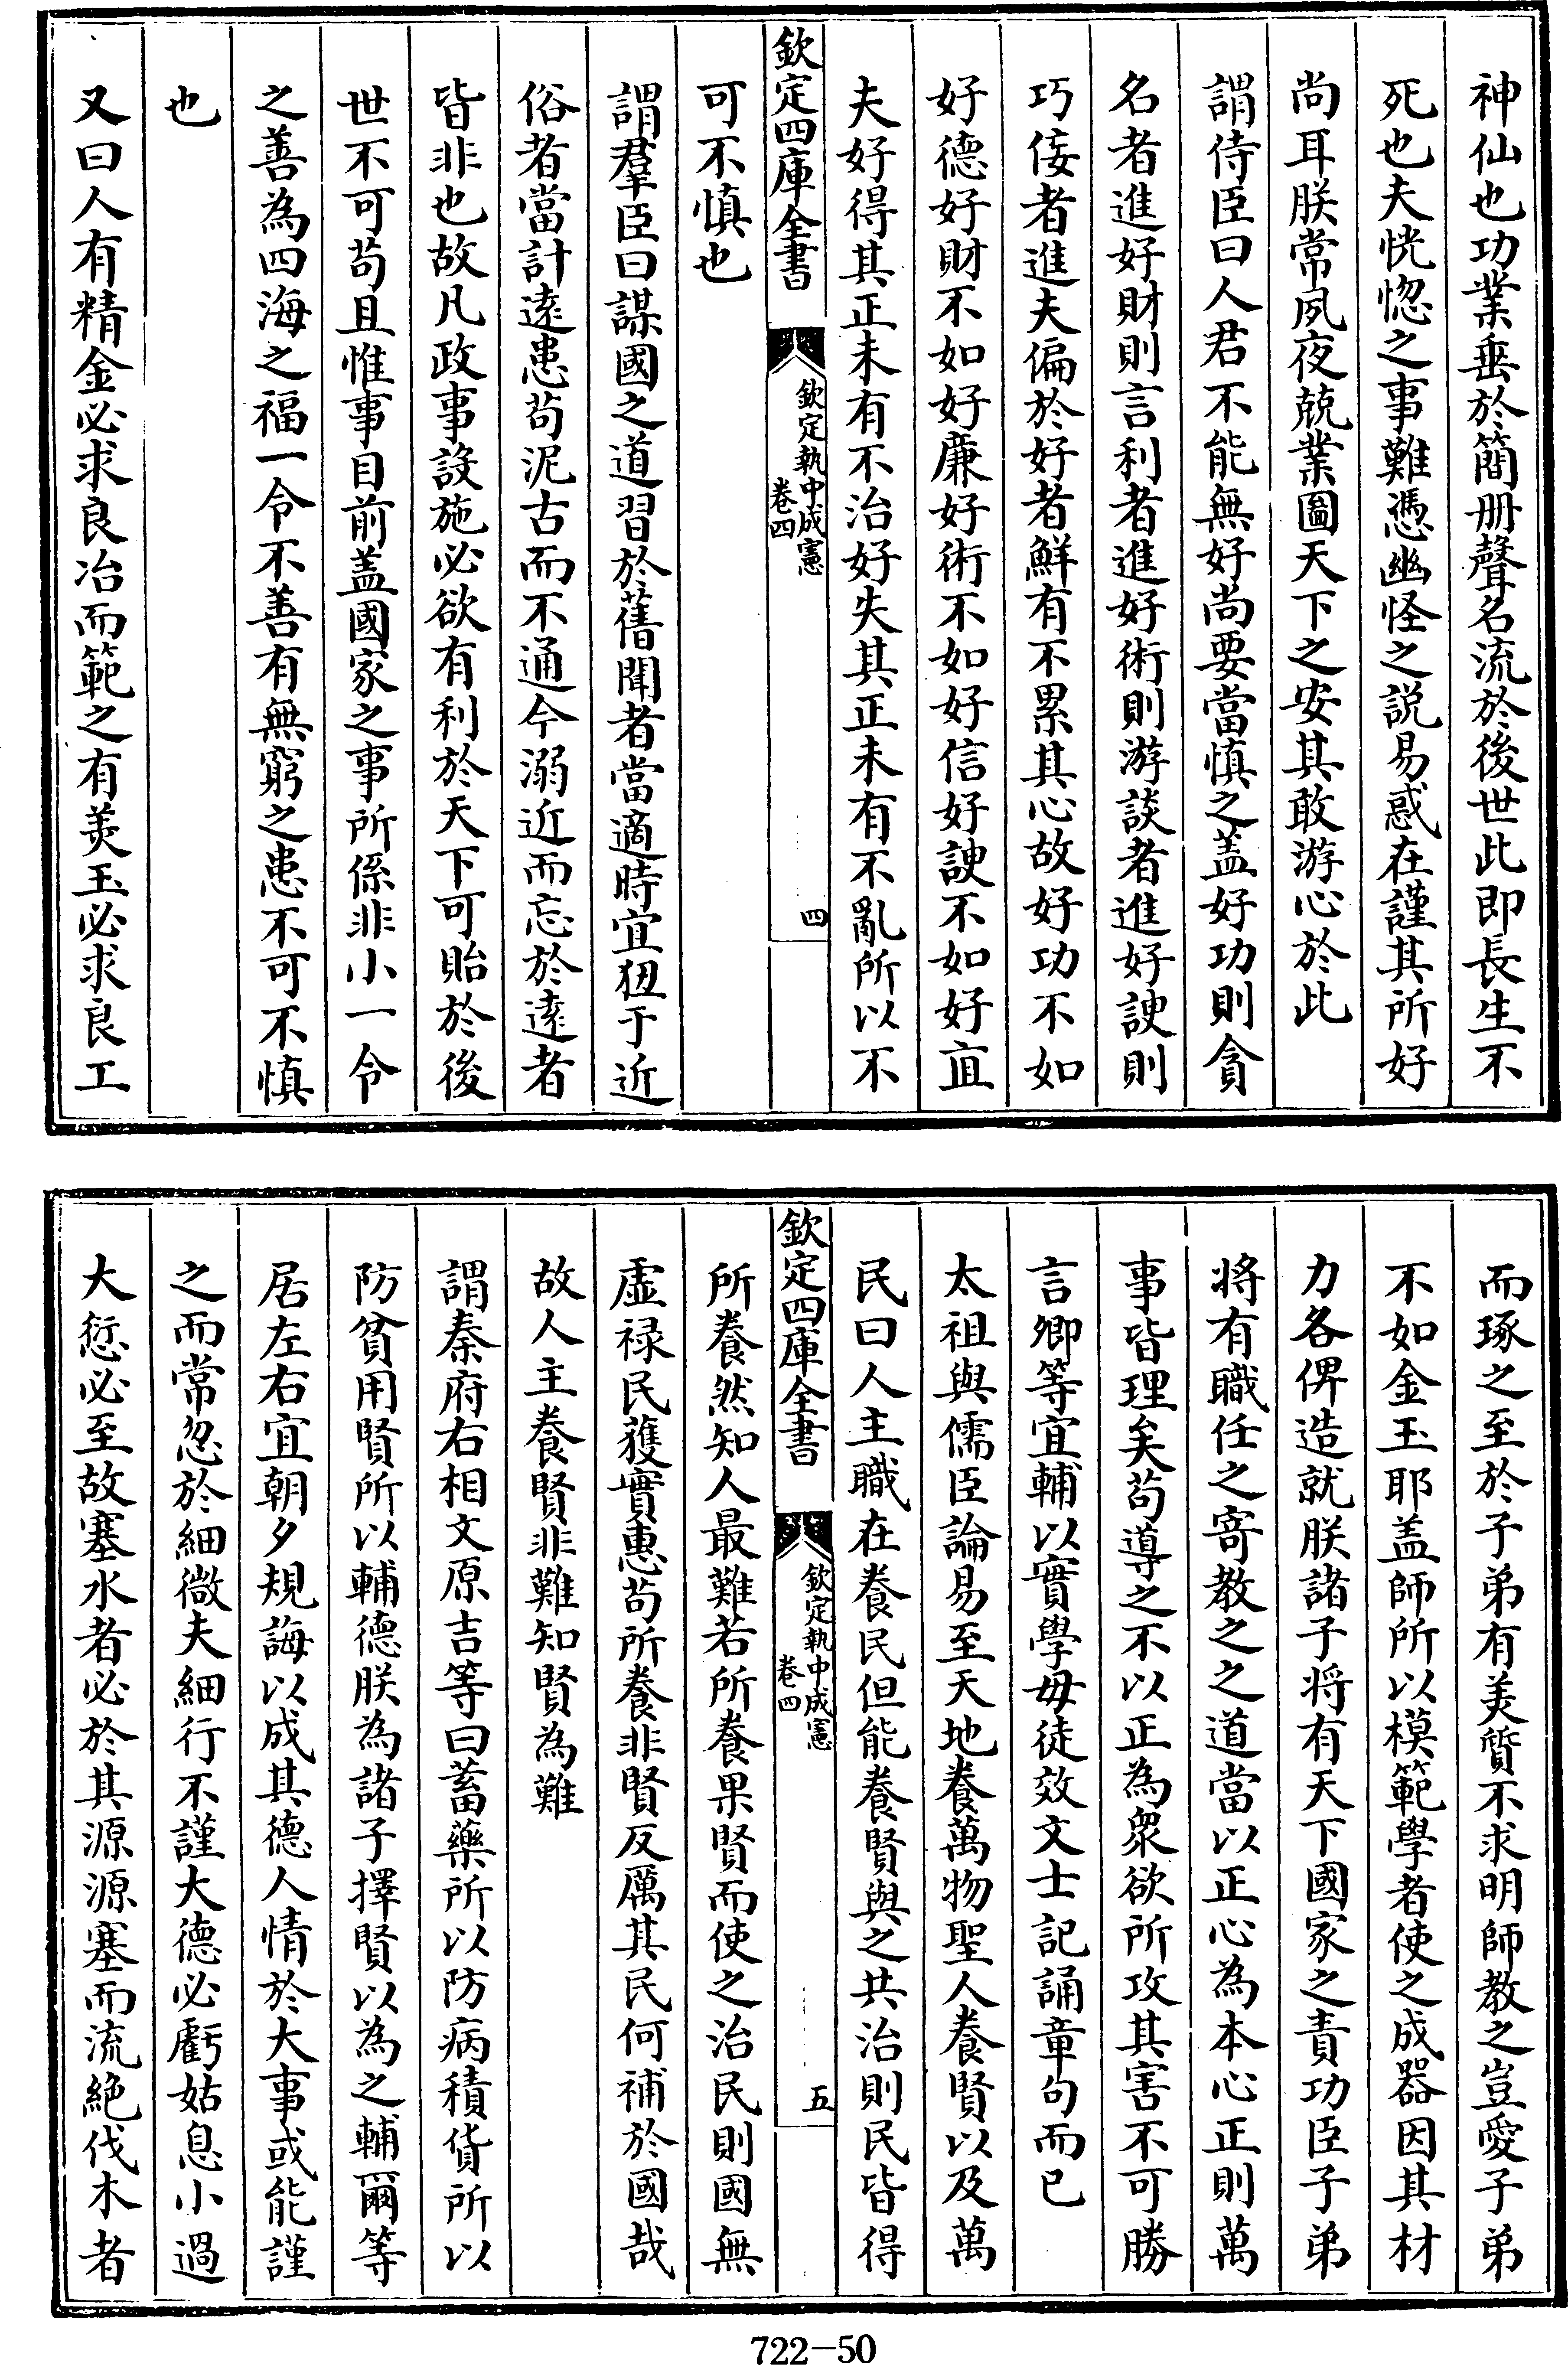 神仙也功業垂於簡册聲名流於後世此即長生不
死也夫恍惚之事難憑幽怪之説易惑在謹其所好
尚耳朕常夙夜兢業圖天下之安其敢游心於此
謂侍臣曰人君不能無好尚要當慎之盖好功則貪
名者進好財則言利者進好術則游談者進好諛則
巧佞者進夫偏於好者鮮有不累其心故好功不如
好德好財不如好廉好術不如好信好諛不如好直
夫好得其正未有不治好失其正未有不亂所以不
欽定四庫全書
欽定執中成憲
卷四
四
可不慎也
謂羣臣曰謀國之道習於舊聞者當適時宜狃于近
俗者當計逺患苟泥古而不通今溺近而忘於逺者
皆非也故凡政事設施必欲有利於天下可貽於後
世不可苟且惟事目前盖國家之事所係非小一令
之善為四海之福一令不善有無窮之患不可不慎
也
又曰人有精金必求良冶而範之有美玉必求良工
而琢之至於子弟有美質不求明師教之豈愛子弟
不如金玉耶盖師所以模範學者使之成器因其材
力各俾造就朕諸子将有天下國家之責功臣子弟
将有職任之寄教之之道當以正心為本心正則萬
事皆理矣苟導之不以正為衆欲所攻其害不可勝
言卿等宜輔以實學毋徒效文士記誦章句而已
太祖與儒臣論易至天地養萬物聖人養賢以及萬
民曰人主職在養民但能養賢與之共治則民皆得
欽定四庫全書
欽定執中成憲
卷四
五
所養然知人最難若所養果賢而使之治民則國無
虚禄民獲實惠苟所養非賢反厲其民何補於國哉
故人主養賢非難知賢為難
謂秦府右相文原吉等曰蓄藥所以防病積貨所以
防貧用賢所以輔德朕為諸子擇賢以為之輔爾等
居左右宜朝夕規誨以成其德人情於大事或能謹
之而常忽於細微夫細行不謹大德必虧姑息小過
大愆必至故塞水者必於其源源塞而流絶伐木者
722-50